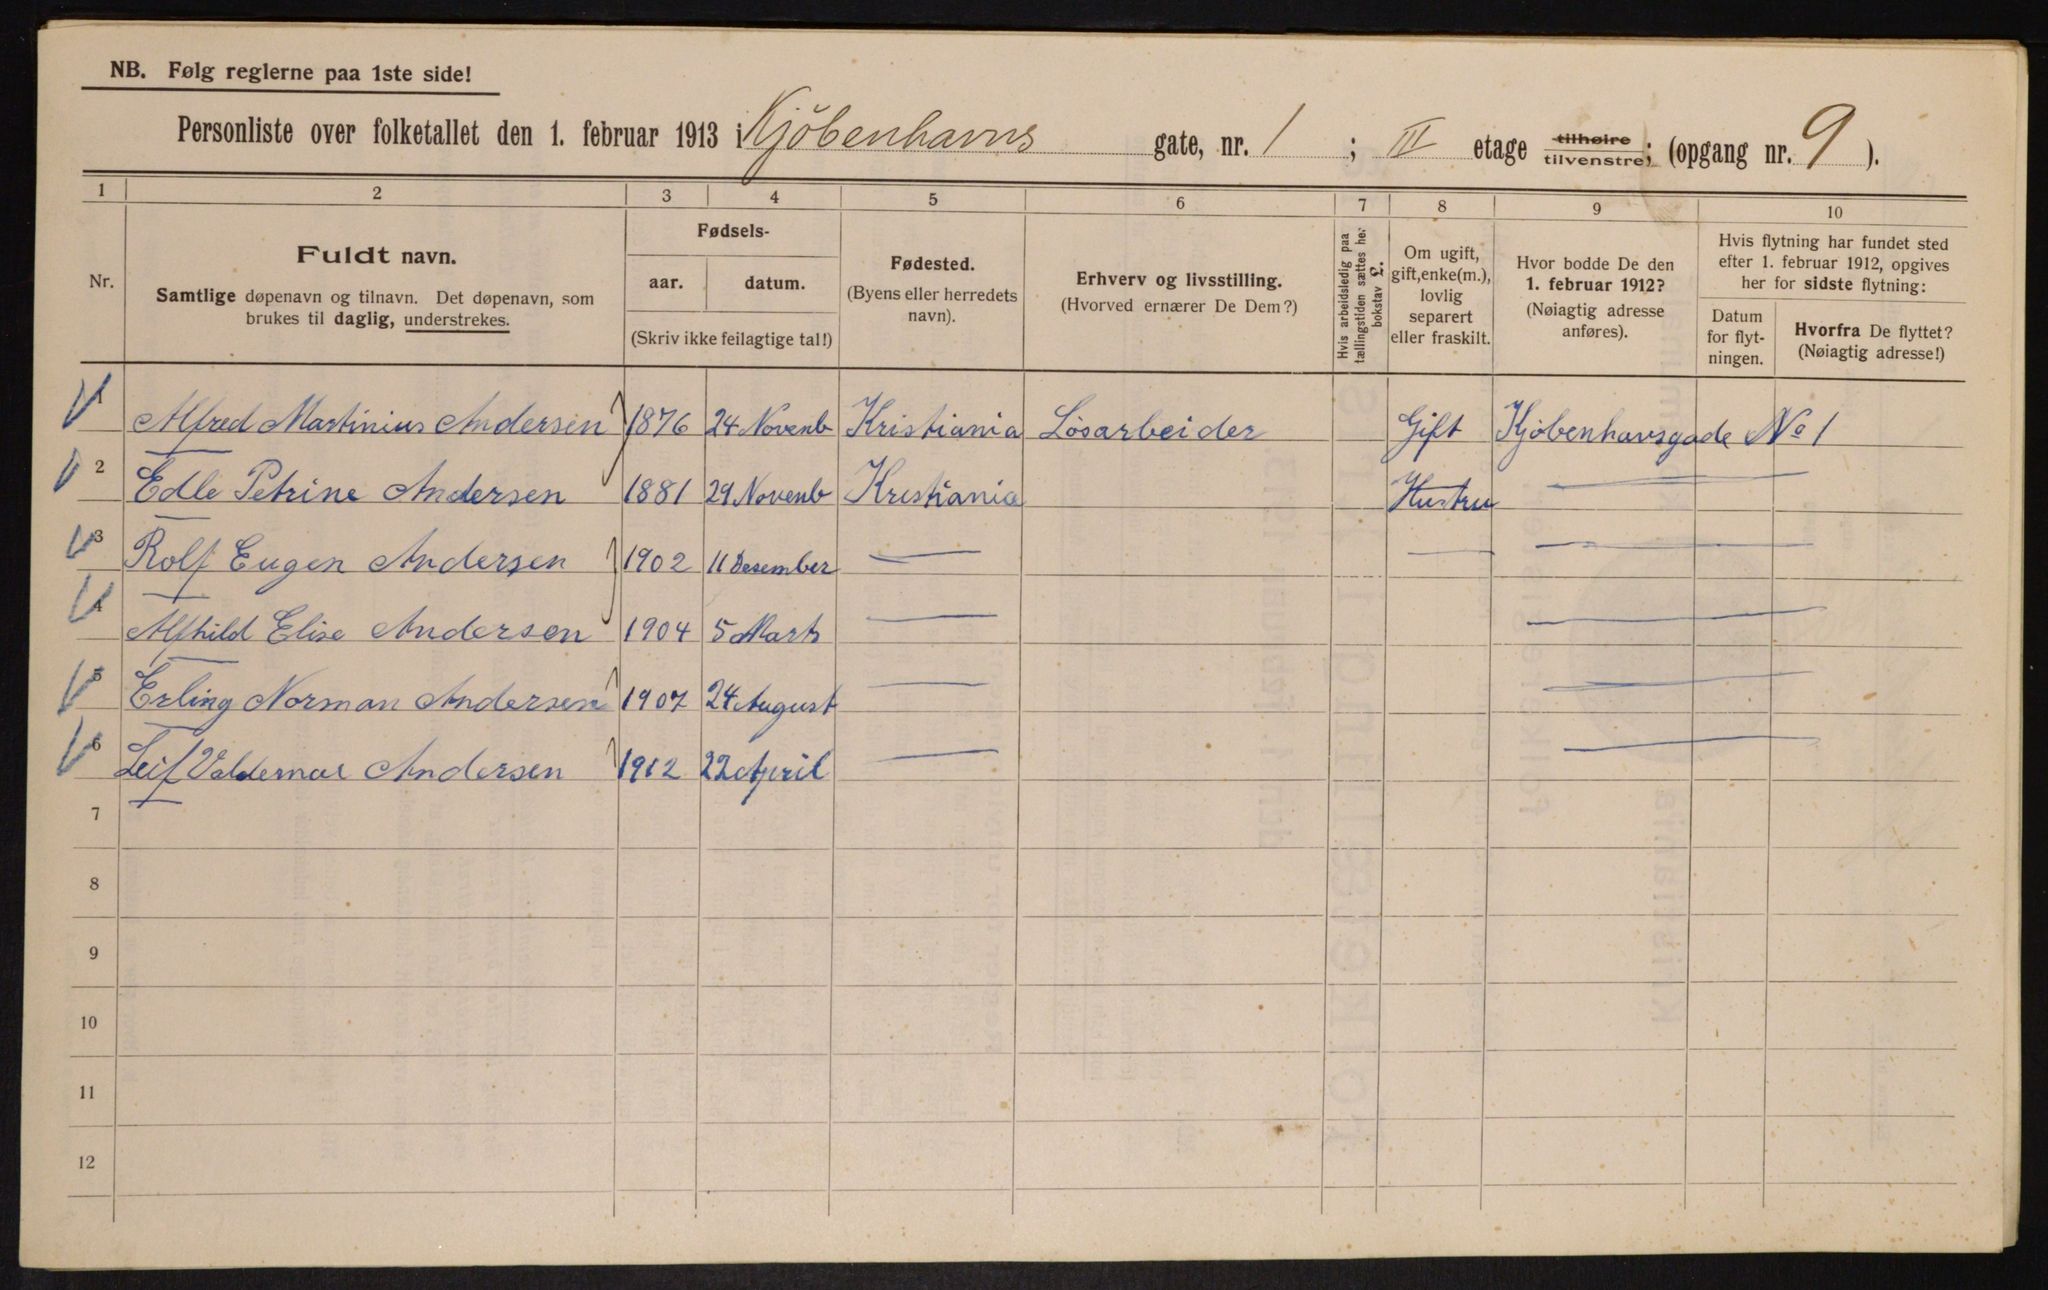 NB. Følg reglerne paa 1ste side!
Personliste over folketallet den 1. februar 1913 i Kjöbenhavns gate, nr. 1 ; II etage tilhøire tilvenstre; (opgang nr. 9 ).
1 2 3 4 5 6 7 8 9 10
Nr.
Fuldt navn.
Samtlige døpenavn og tilnavn. Det døpenavn, som
brukes til daglig, understrekes.
Fødsels-
aar. datum.
(Skriv ikke feilagtige tal!)
Fødested.
(Byens eller herredets
navn).
Erhverv og livsstilling.
(Hvorved ernærer De Dem?)
Hvis arbeidsledig paa
tællingstiden sættes her
bokstav L.
Om ugift,
gift, enke(m.),
lovlig
separert
eller fraskilt.
Hvor bodde De den
1. februar 1912?
(Nøiagtig adresse
anføres).
Hvis flytning har fundet sted
efter 1. februar 1912, opgives
her for sidste flytning:
Datum
for flyt-
ningen.
Hvorfra De flyttet?
(Nøiagtig adresse!)
1 Alfred Martinius Andersen 1876 24 Novenb Kristiania Lösarbeider Gift Kjöbenhavsgade No 1
2 Edle Petrine Andersen 1881 29 Novenb Kristiania Hustru —
3 Rolf Eugen Andersen 1902 11 Desember — — —
4 Alfhild Elise Andersen 1904 5 Marts — —
5 Erling Norman Andersen 1907 24 August — —
6 Leif Valdemar Andersen 1912 22 April — —
7
8
9
10
11
12